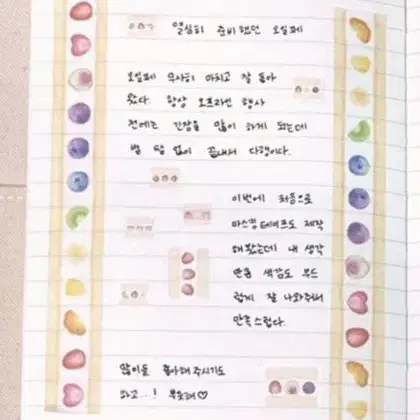 열심히 준비했던 오일페
오일페 무사히 마치고 잘 돌아
왔다. 항상 오프라인 행사
전에는 긴장을 많이 하게 되는데
별 탈 없이 끝내서 다행이다.
이번에 처음으로
마스킹테이프도 제작
해봤는데 내 생각
만큼 색감도 부드
럽게 잘 나와주어
만족스럽다.
많이들 좋아해주시기도
하고...! 뿌듯해♡